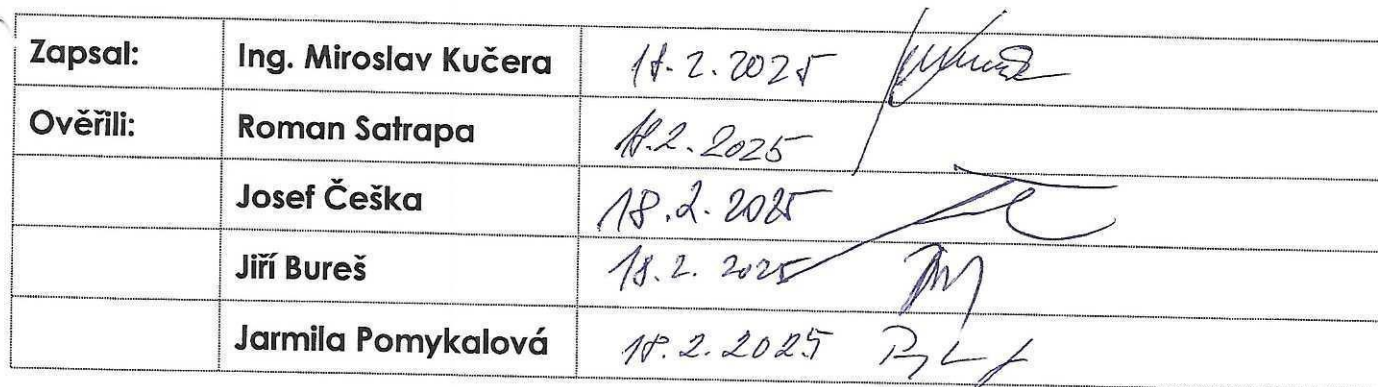 Zapsal: Ing. Miroslav Kučera 18.2.2025
Ověřili: Roman Satrapa 18.2.2025
Josef Češka 18.2.2025
Jiří Bureš 18.2.2025
Jarmila Pomykalová 18.2.2025